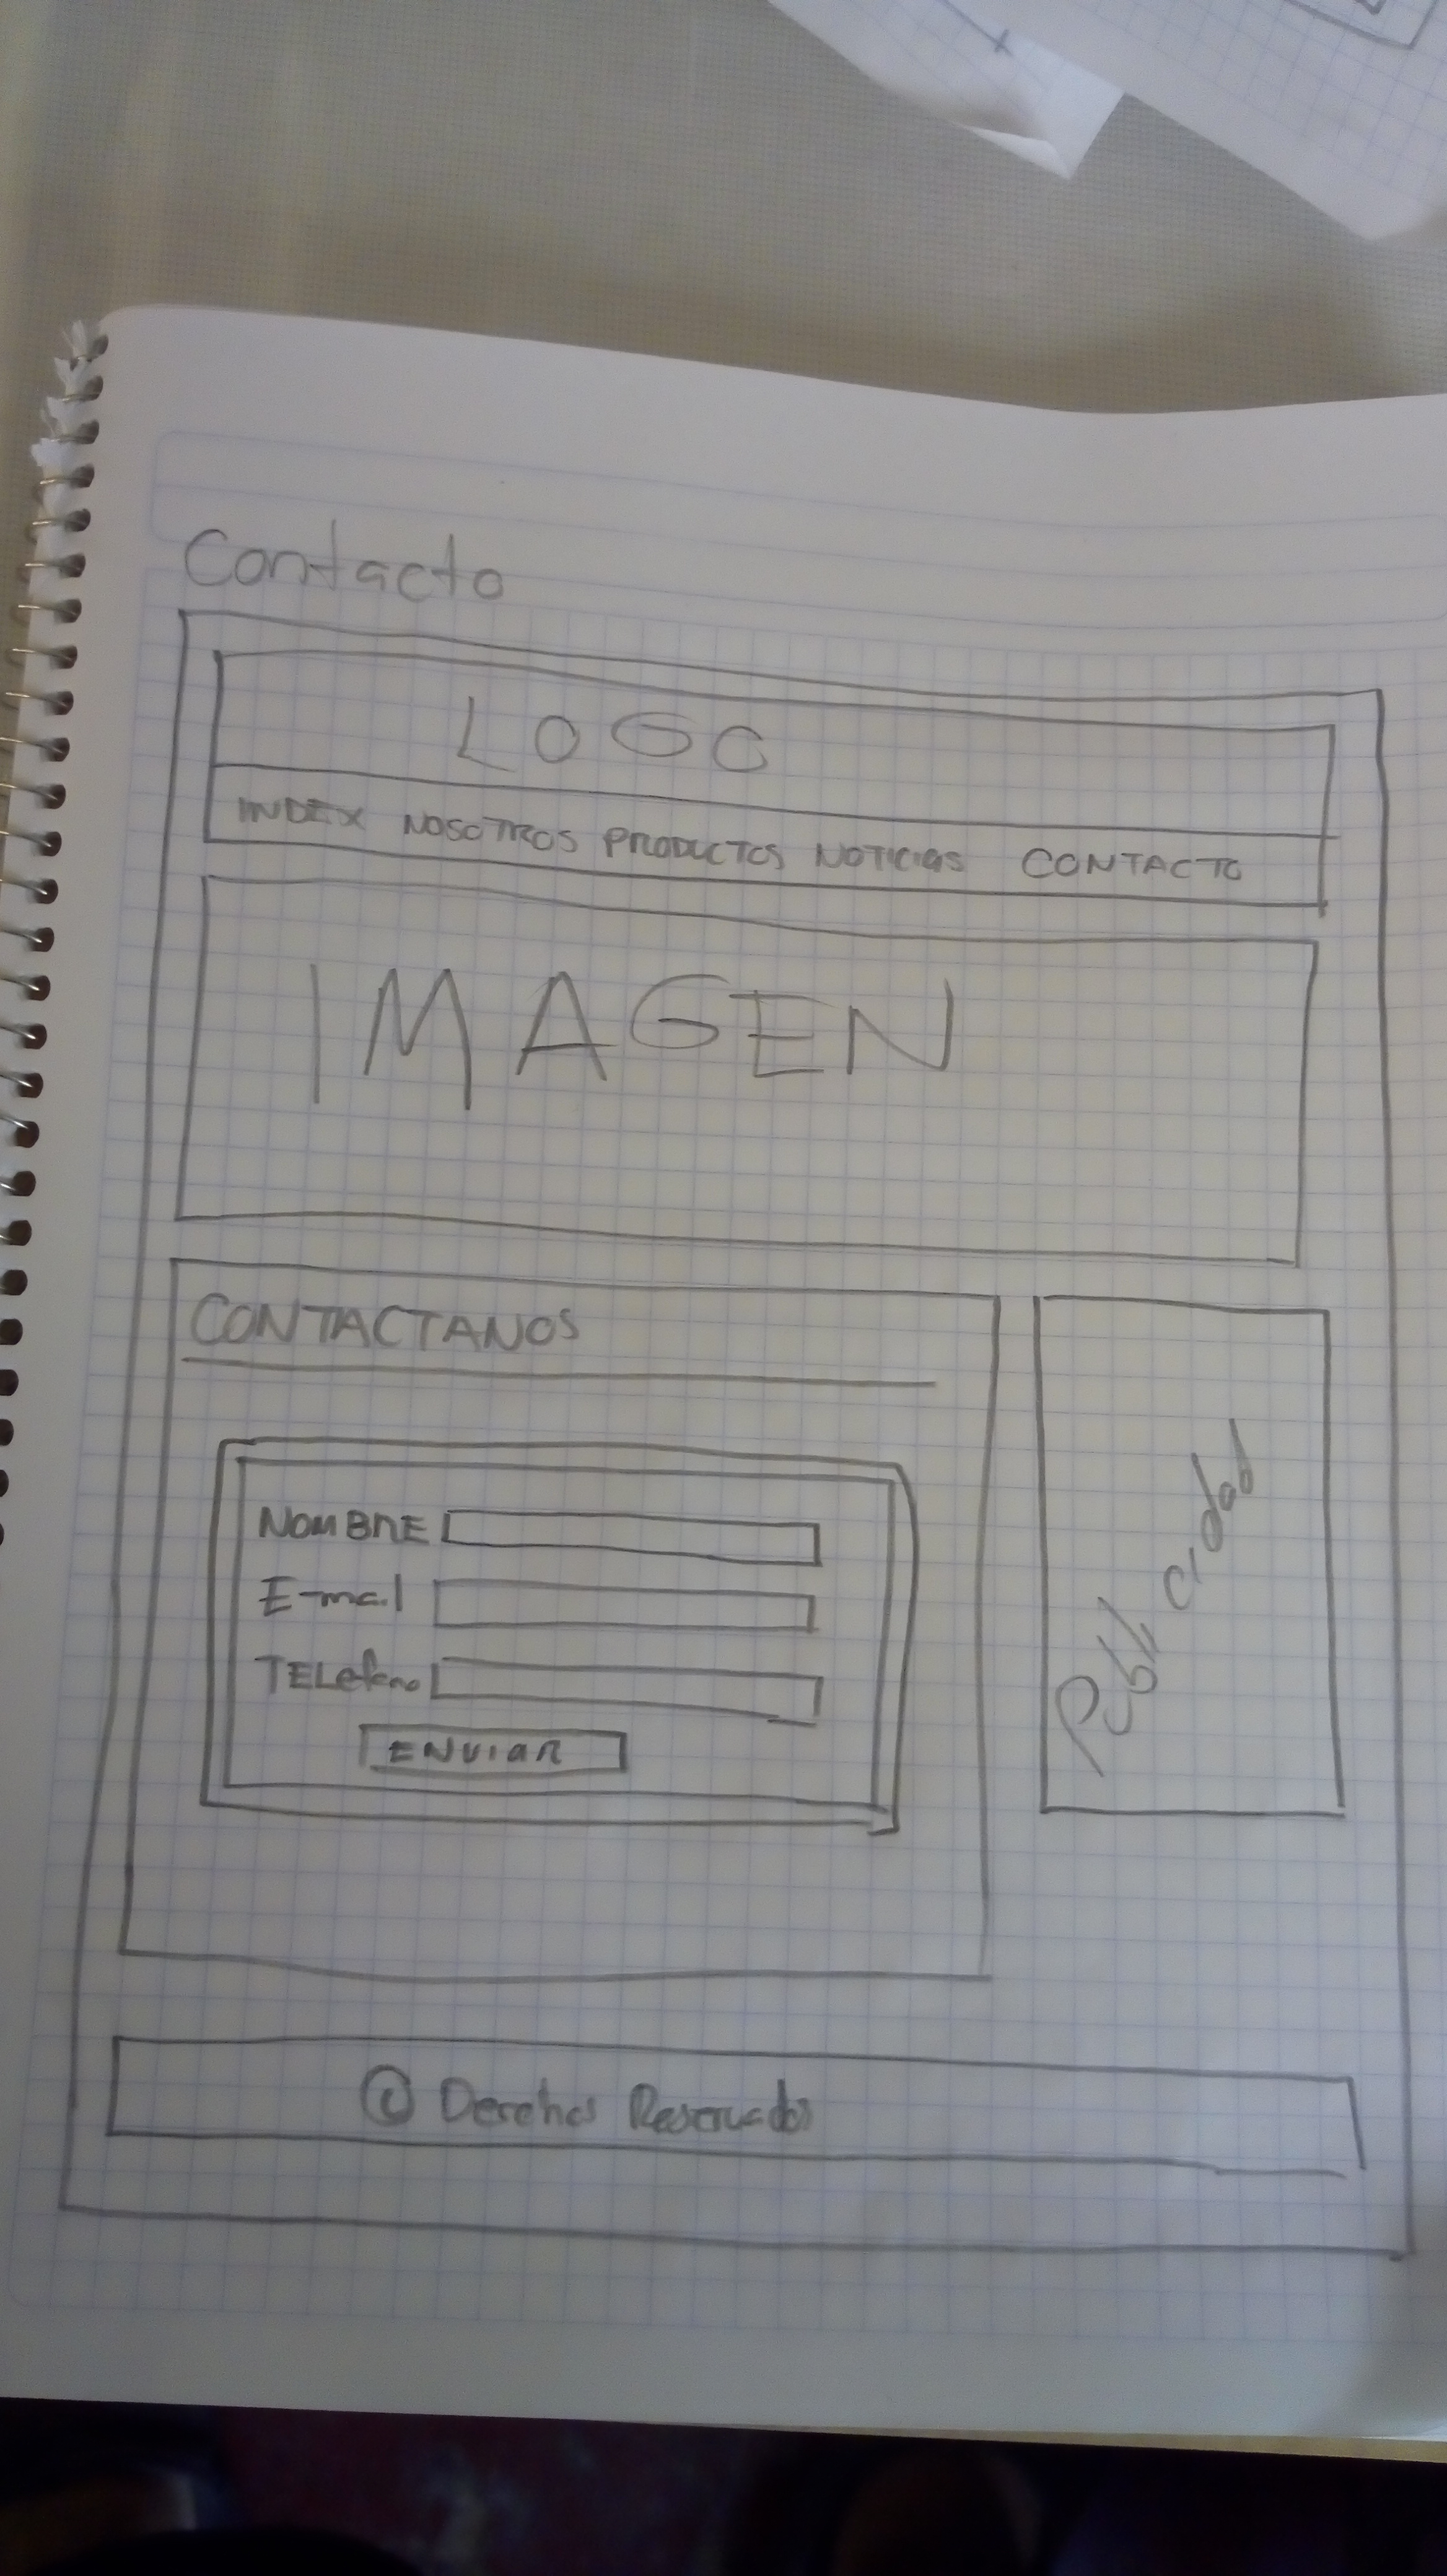 Contacto
LOGO
INDEX NOSOTROS PRODUCTOS NOTICIAS CONTACTO
IMAGEN
CONTACTANOS
NOMBRE
E-mail
TELefono
ENVIAR
Publicidad
© Derechos Reservados